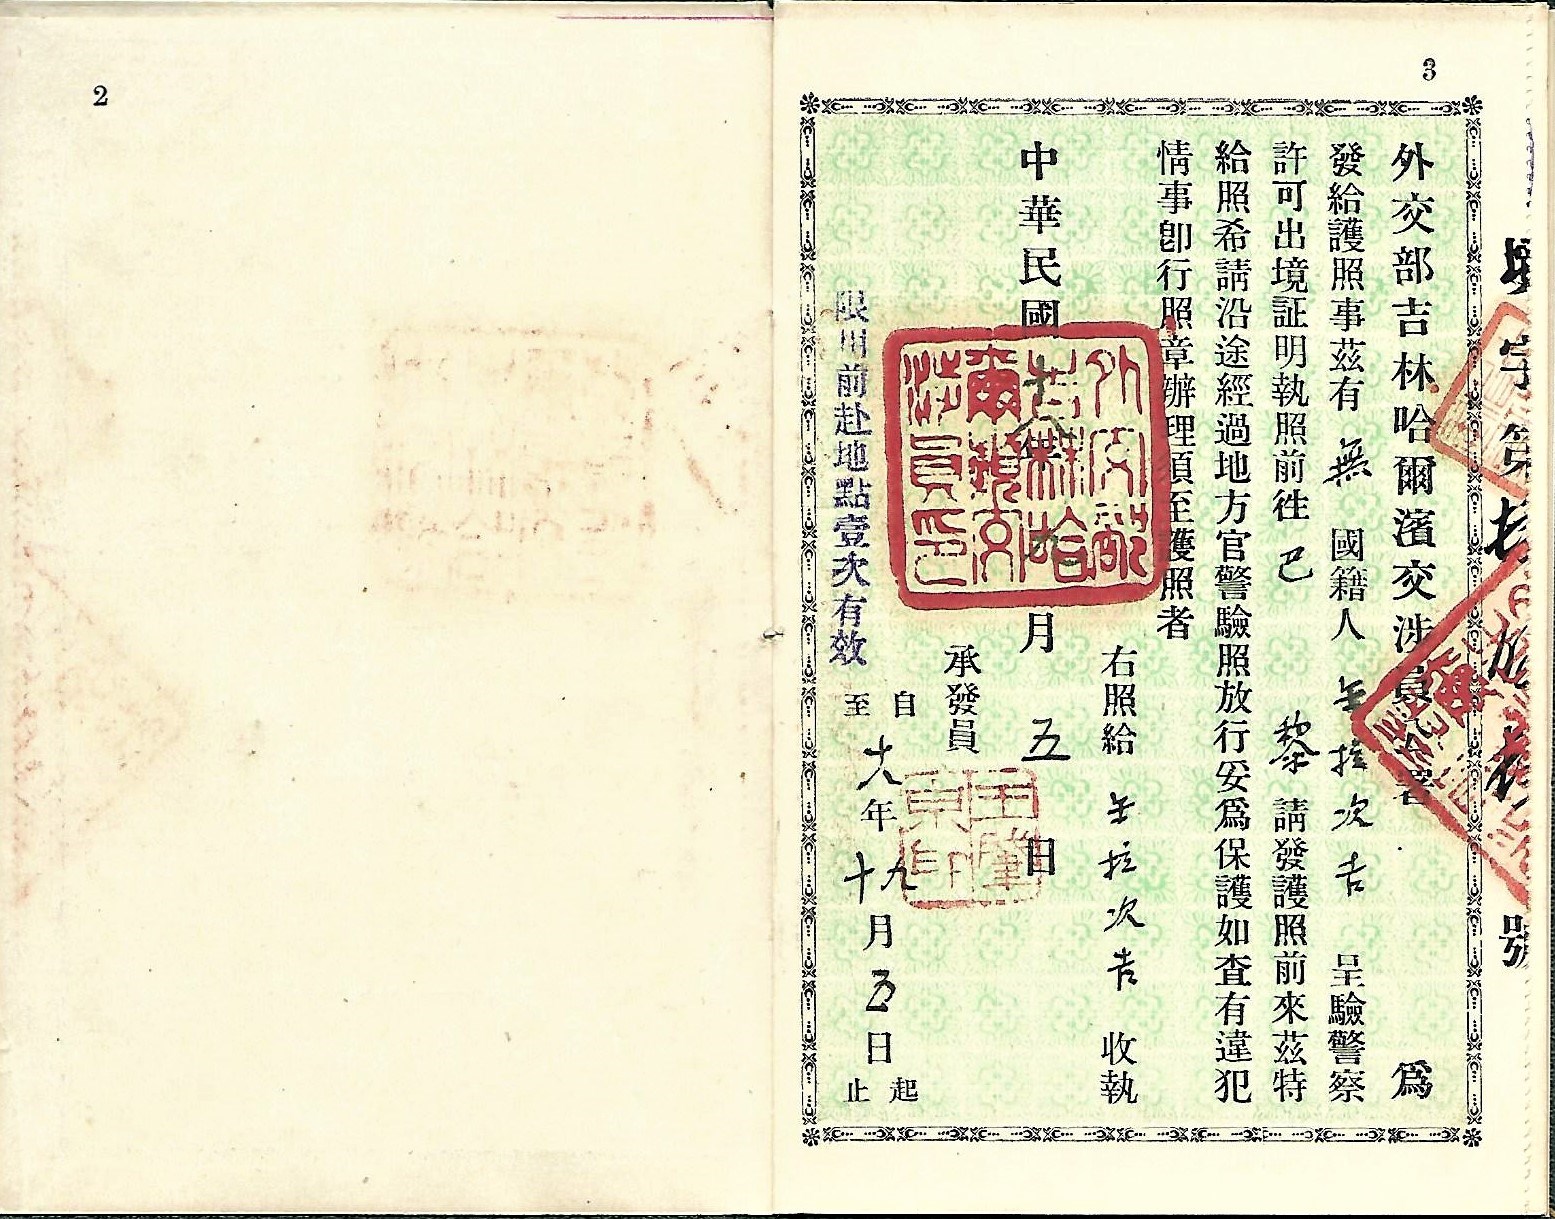 2
3
字第
號
外交部吉林哈爾濱交涉員公署 爲
發給護照事茲有 無 國籍人 拉次吉 呈驗警察
許可出境証明執照前徃 巴黎 請發護照前來茲特
給照希請沿途經過地方官警驗照放行妥爲保護如查有違犯
情事卽行照章辦理須至護照者
右照給 拉次吉 收執
中華民國十八年九月五日
外交部
吉林哈
爾濱交
涉員印
承發員
自 起
十八年九十月五日
至 止
限用前赴地點壹次有效